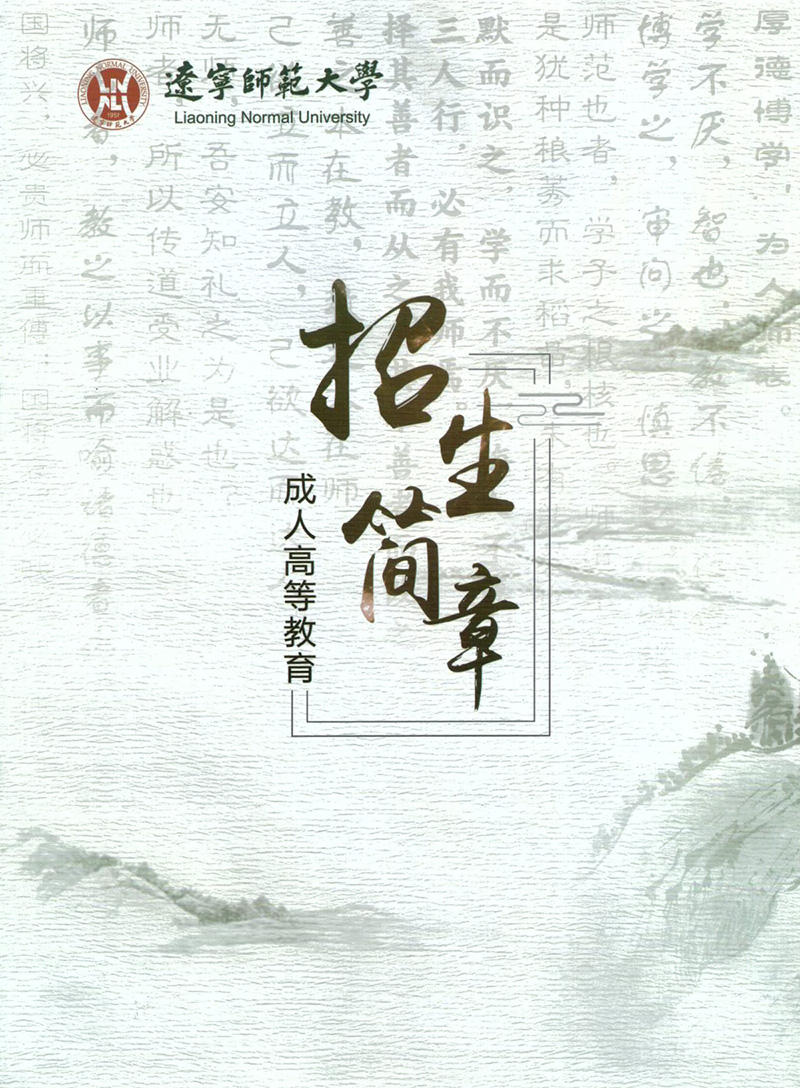 遼寧師範大學
Liaoning Normal University
LIAONING NORMAL UNIVERSITY
1951
遼寧師範大學
招生简章
成人高等教育
厚德博学，为人师表。
学不厌，智也；教不倦
博学之，审问之，慎思
师范也者，学子之根核也。师
是犹种稂莠而求稻苗，未
默而识之，学而不厌
三人行，必有我师焉。
择其善者而从之
善之本在教，本在师
己立而立人，己欲达而
无师，吾安知礼之为是也？
师者，所以传道受业解惑也
师者，教之以事而喻诸德者
国将兴，必贵师而重傅；国将